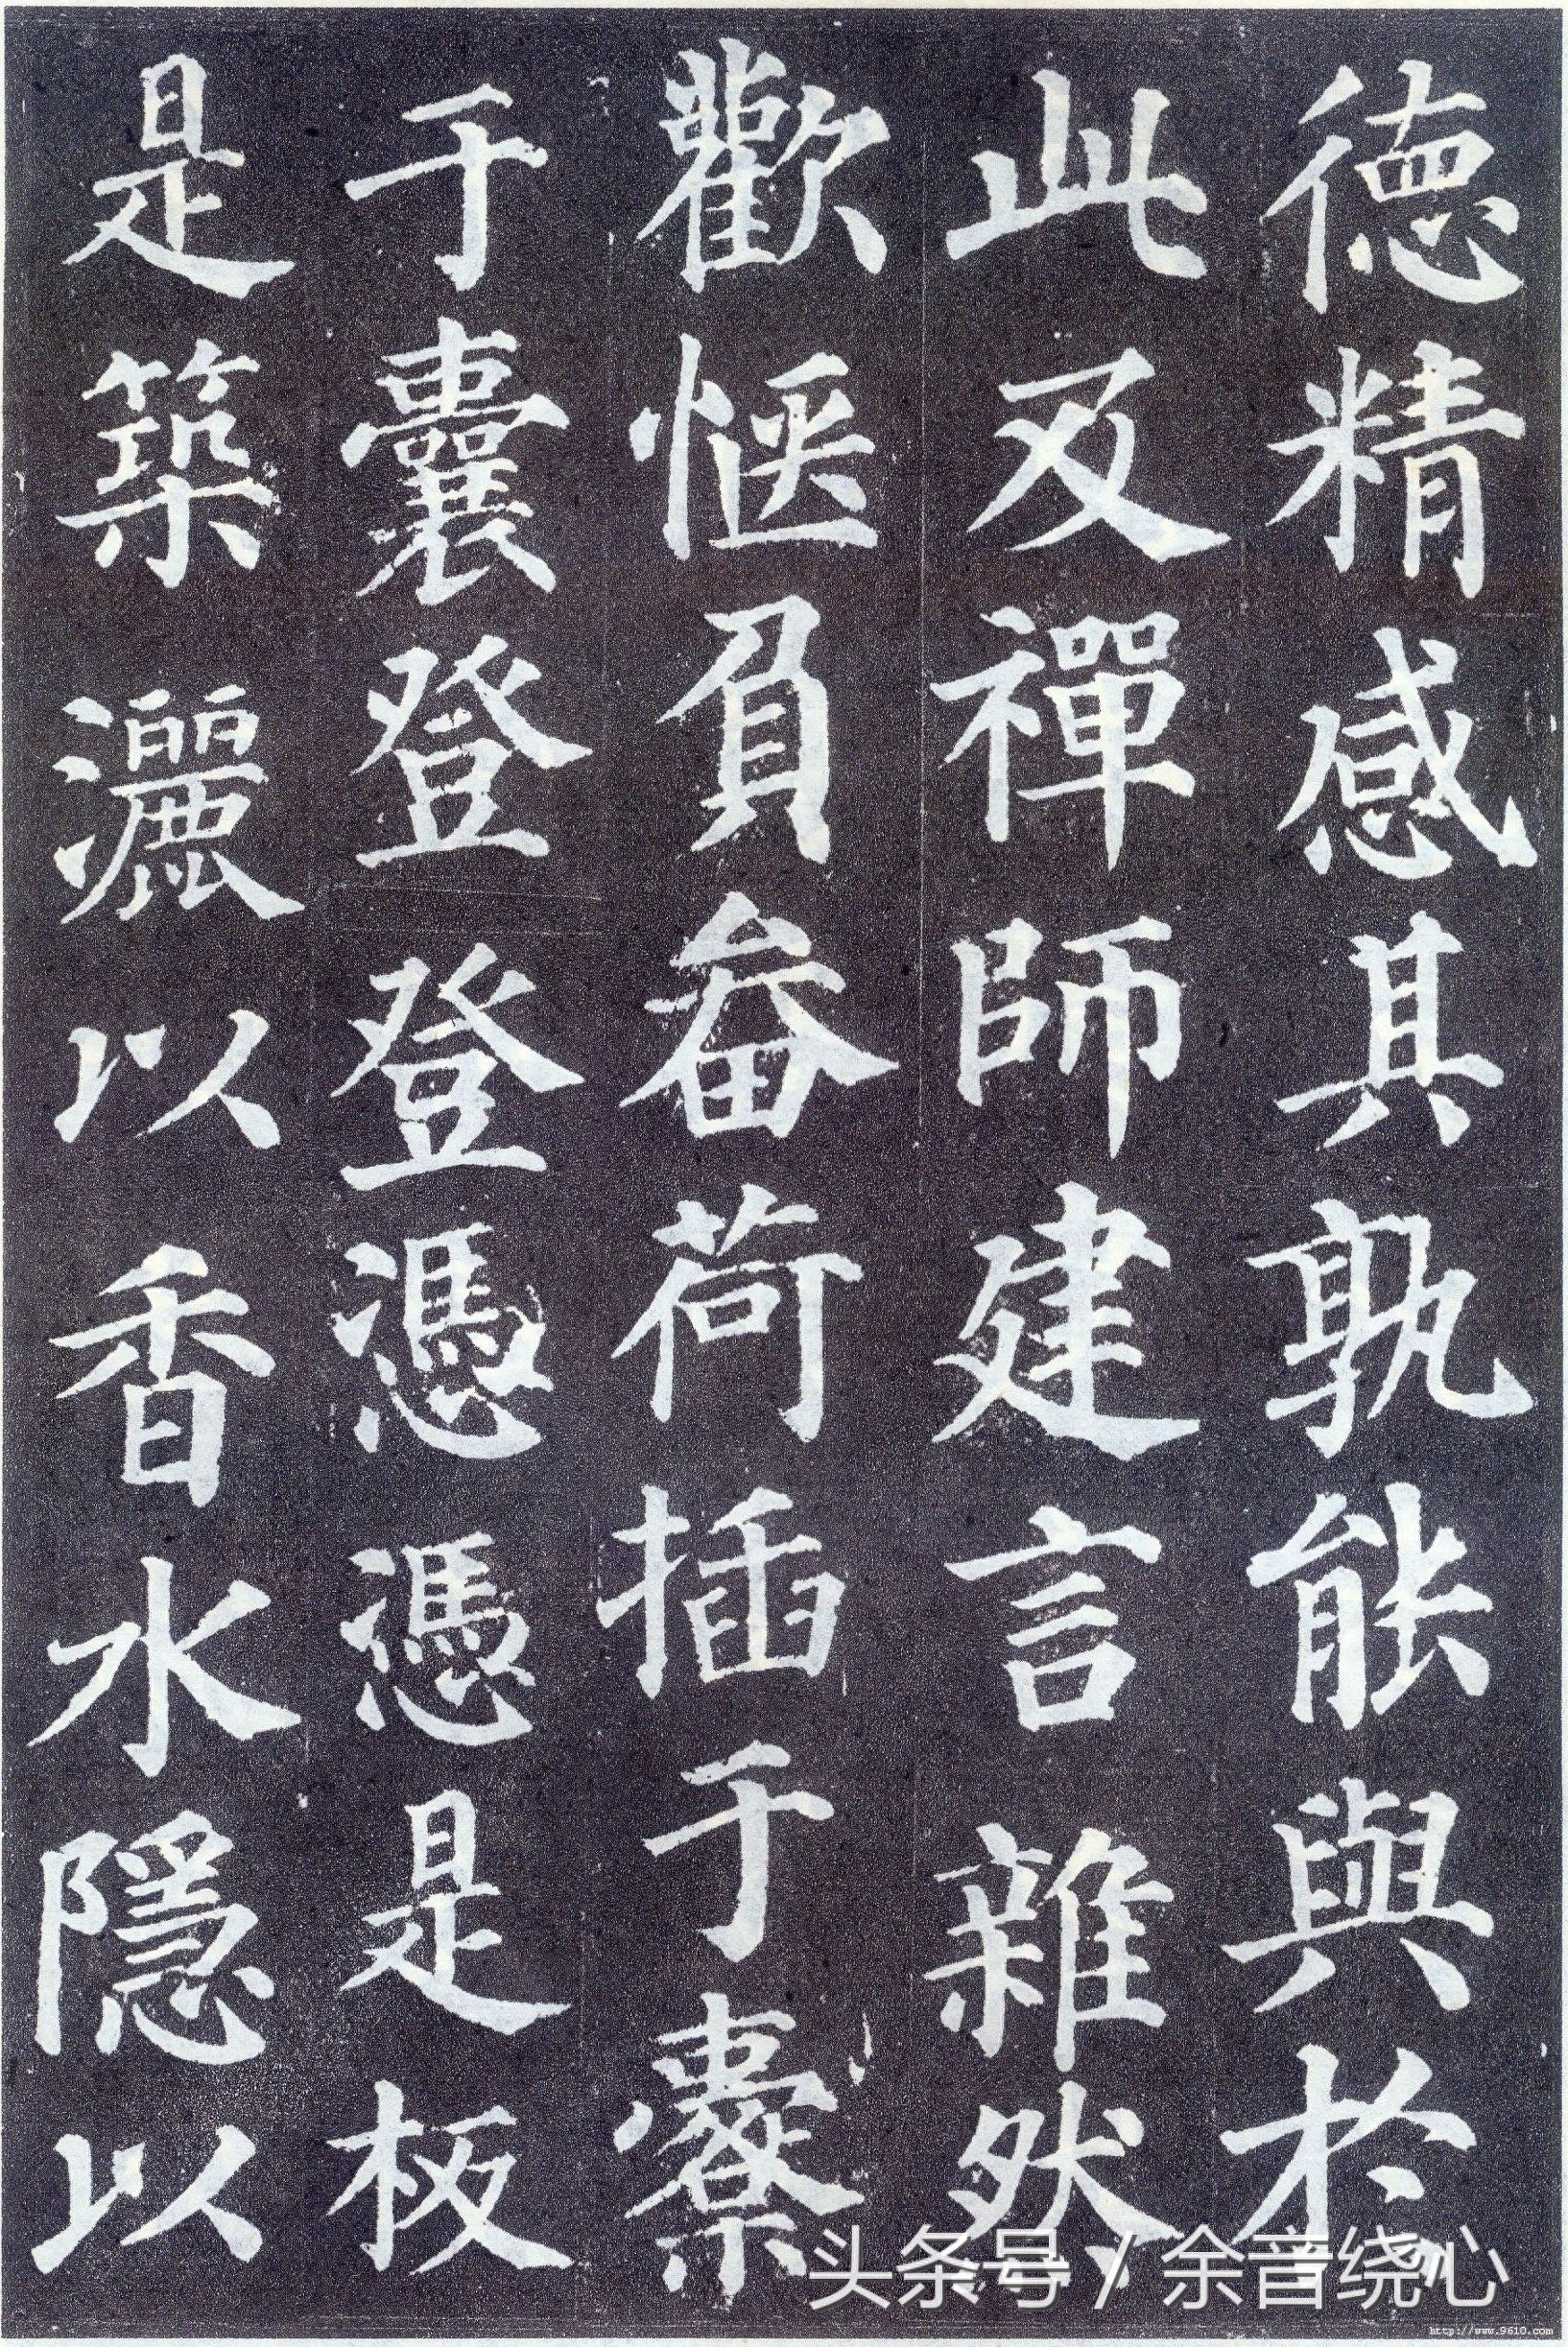 德精感其孰能與於
此及禪師建言雜然
歡愜負畚荷插于橐
于囊登登憑憑是板
是築灑以香水隱以
头条号 / 余音绕心
http://www.9610.com